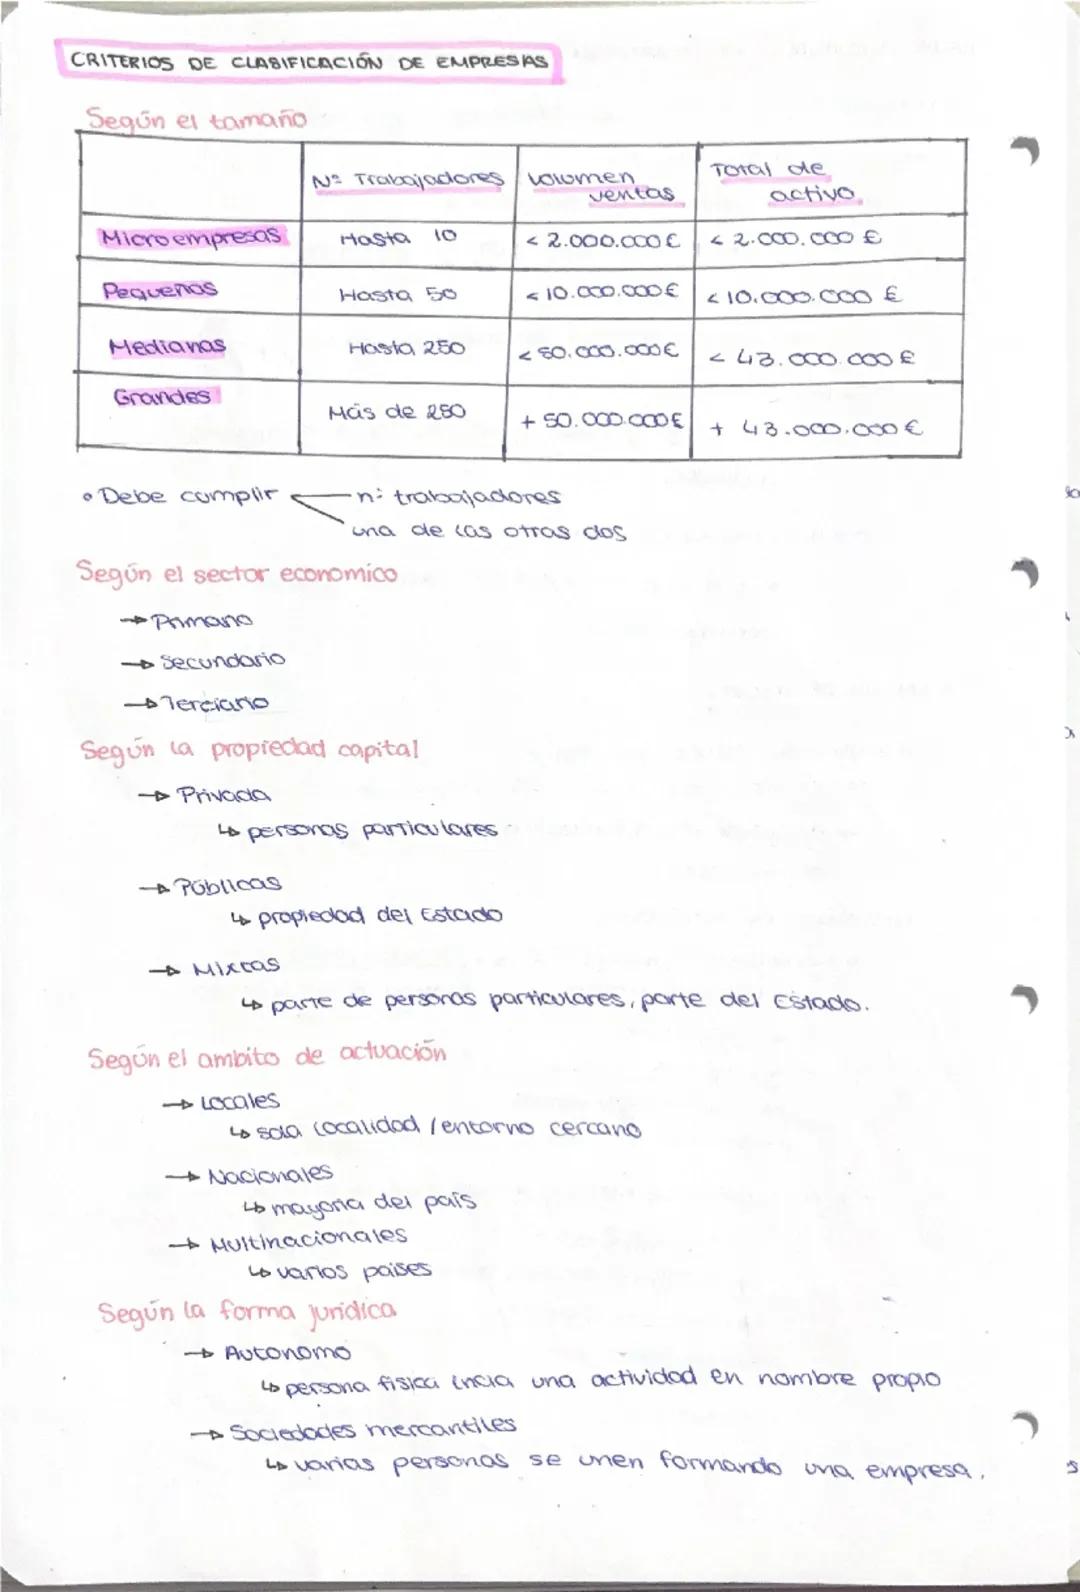 CRITERIOS DE CLASIFICACIÓN DE EMPRESAS
Según el tamaño
Nº Trabajadores Volumen ventas Total de activo
Microempresas Hasta 10 < 2.000.000 € < 2.000.000 €
Pequeñas Hasta 50 < 10.000.000 € < 10.000.000 €
Medianas Hasta 250 < 50.000.000 € < 43.000.000 €
Grandes Más de 250 + 50.000.000 € + 43.000.000 €
• Debe cumplir n: trabajadores
una de las otras dos
Según el sector economico
→ Primario
→ Secundario
→ Terciario
Según la propiedad capital
→ Privada
↳ personas particulares
→ Públicas
↳ propiedad del Estado
→ Mixtas
↳ parte de personas particulares, parte del Estado.
Según el ambito de actuación
→ Locales
↳ sola localidad / entorno cercano
→ Nacionales
↳ mayoria del país
→ Multinacionales
↳ varios paises
Según la forma juridica
→ Autonomo
↳ persona fisica inicia una actividad en nombre propio
→ Sociedades mercantiles
↳ varias personas se unen formando una empresa.